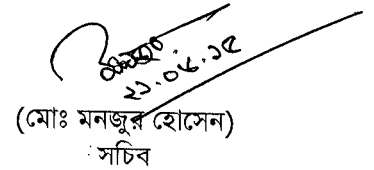 ২১.০৬.১৫
(মোঃ মনজুর হোসেন)
সচিব